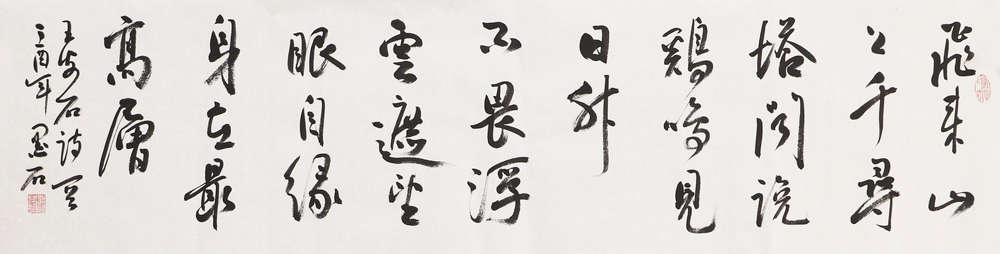 飛來山
上千尋
塔聞說
鷄鳴見
日升
不畏浮
雲遮望
眼自緣
身在最
高層
王安石詩
丁酉年 墨石